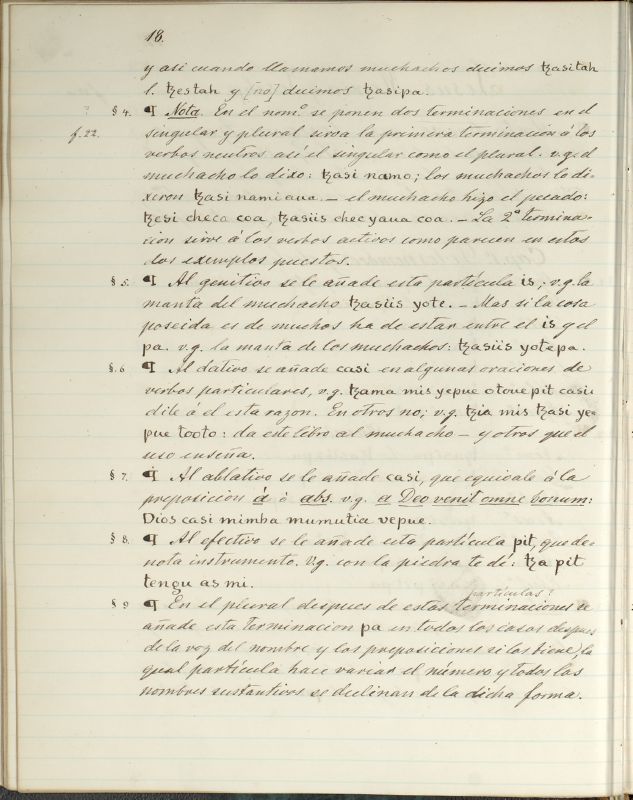 18.
y asi cuando llamamos muchachos decimos ꜩasitah
l. ꜩestah y [no] decimos ꜩasipa.
? § 4. ¶ Nota. En el nomº se ponen dos terminaciones en el
f. 22. singular y plural sirva la primera terminacion á los
verbos neutros asi el singular como el plural. v.g. el
muchacho lo dixo: ꜩasi namo; los muchachos lo di-
xeron ꜩasi namiaua. – el muchacho hizo el pecado:
ꜩesi checa coa, ꜩasiis checyaua coa. – La 2ª termina-
cion sirve á los verbos activos como parecen en estos
dos exemplos puestos.
§ 5. ¶ Al genitivo se le añade esta partícula is; v.g. la
manta del muchacho ꜩasiis yote. – Mas si la cosa
poseida es de muchos ha de estar entre el is y el
pa. v.g. la manta de los muchachos: ꜩasiis yotepa.
§. 6 ¶ Al dativo se añade casi en algunas oraciones de
verbos particulares, v.g. ꜩama mis yepue otoue pit casi:
dile á él esta razon. En otros no; v.g. ꜩia mis ꜩasi ye-
pue tooto: da este libro al muchacho – y otros que el
uso enseña.
§ 7. ¶ Al ablativo se le añade casi, que equivale á la
preposicion á ó abs. v.g. a Deo venit omne bonum:
Dios casi mimba mumutia vepue.
§ 8. ¶ Al efectivo se le añade esta partícula pit, que de-
nota instrumento. Vg. con la piedra te dé: ꜩa pit
tengu as mi.
partículas?
§ 9 ¶ En el plural despues de estas terminaciones se
añade esta terminacion pa en todos los casos despues
de la voz del nombre y las preposiciones si las tiene, la
qual partícula hace variar el número y todos los
nombres sustantivos se declinan de la dicha forma.